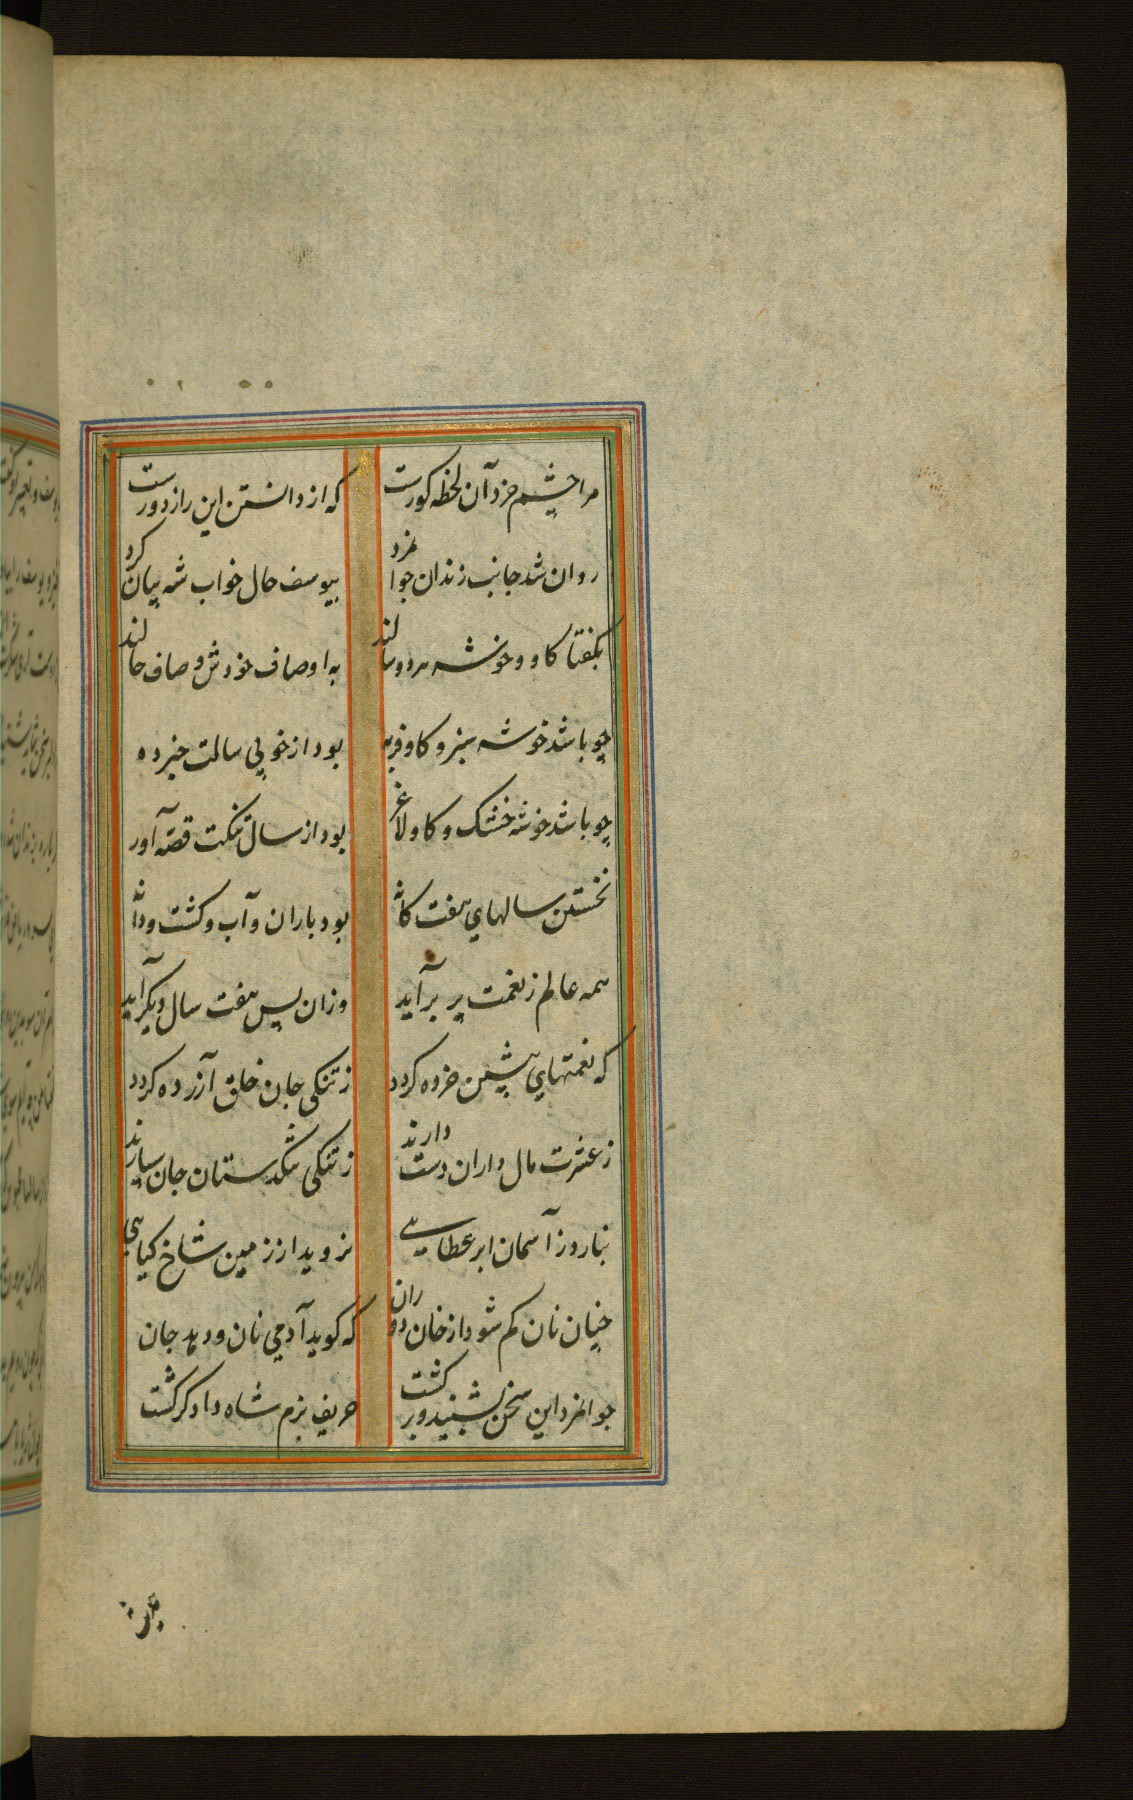 مرا چشم خرد آن لحظه کورست که از دانستن این راز دورست
روان شد جانب زندان جوانمرد بیوسف حال خواب شه بیان کرد
بکفتا کاو و خوشه هر دو سالند به اوصاف خودش وصاف حالند
چو باشد خوشه سبز و کاو فربه بود از خوبی سالت خبر ده
چو باشد خوشه خشک و کاو لاغر بود از سال تنکت قصه آور
نخستین سالهای هفت کانه بود باران و آب و کشت و دانه
همه عالم ز نعمت پر برآید وزان پس هفت سال دیکر آید
که نعمتهای پیشین خورده کردد ز تنکی جان خلق آزرده کردد
ز عشرت مال داران دست دارند ز تنکی تنکدستان جان سپارند
نبارد ز آسمان ابر عطایی نروید از زمین شاخ کیاهی
چنان نان کم شود از خان دوران که کوید آدمی نان و دهد جان
جوانمرد این سخن بشنید و بر کشت حریف بزم شاه دادکر کشت